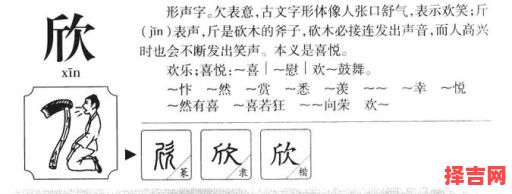 欣
xīn
形声字。欠表意，古文字形体像人张口舒气，表示欢笑；斤
（jīn）表声，斤是砍木的斧子，砍木必接连发出声音，而人高兴
时也会不断发出笑声。本义是喜悦。
欢乐；喜悦：～喜｜～慰｜欢～鼓舞。
～忭 ～然 ～赏 ～悉 ～羡 ～～ ～幸 ～悦
～然有喜 ～喜若狂 ～～向荣 欢～
欣 篆
欣 隶
欣 楷
择吉网